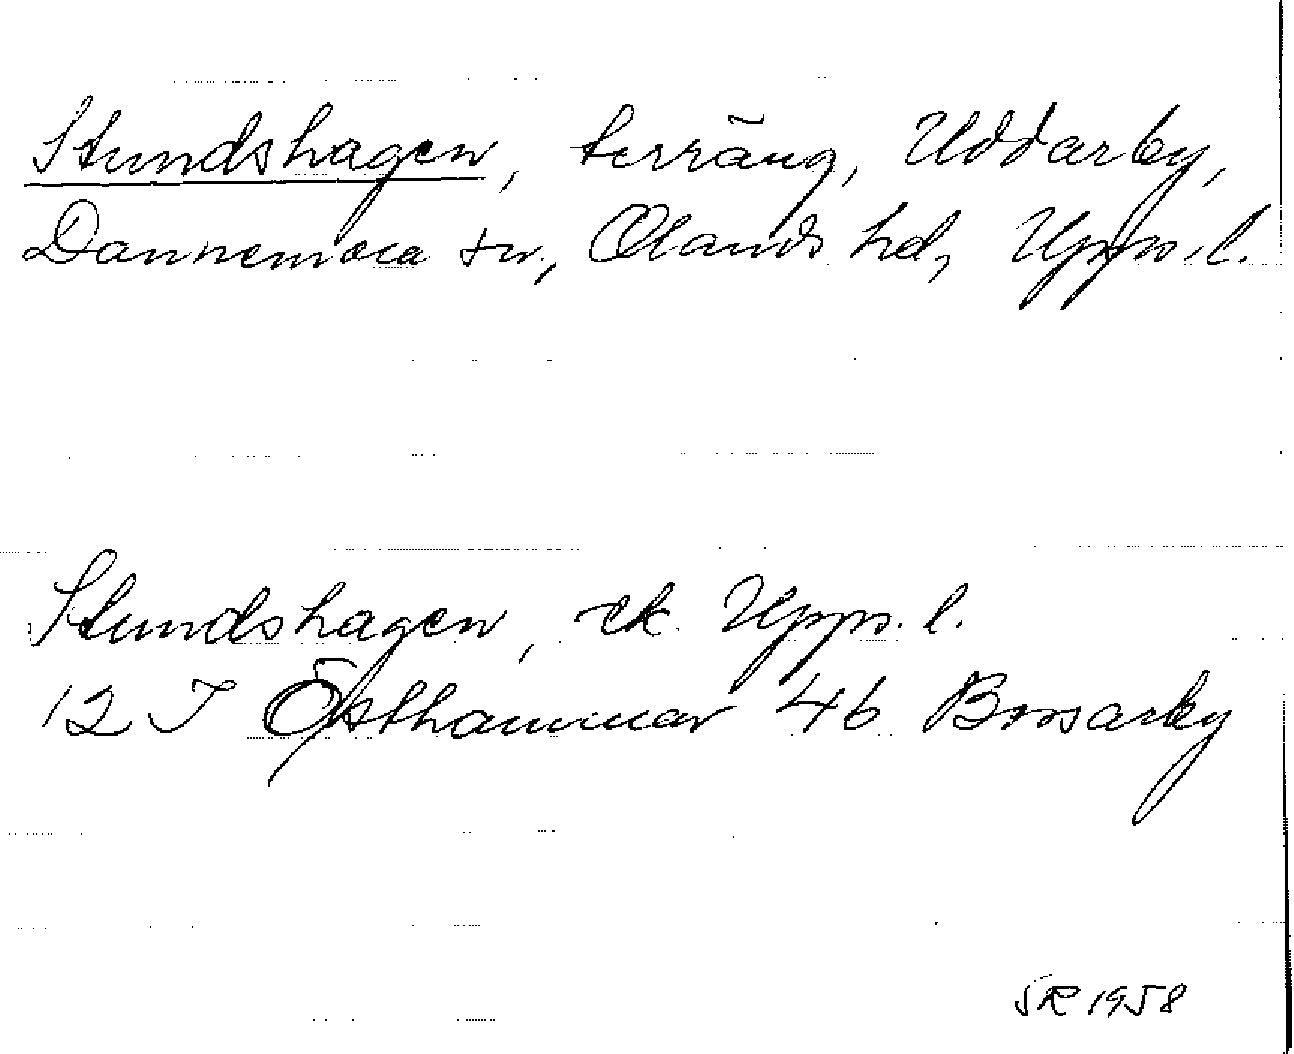 Stundshagen, terräng, Uddarby,
Dannemora sn., Olands hd, Upps. l.
Stundshagen, ek. Upps. l.
12 I Östhammar 46 Bossarby
SR 1958